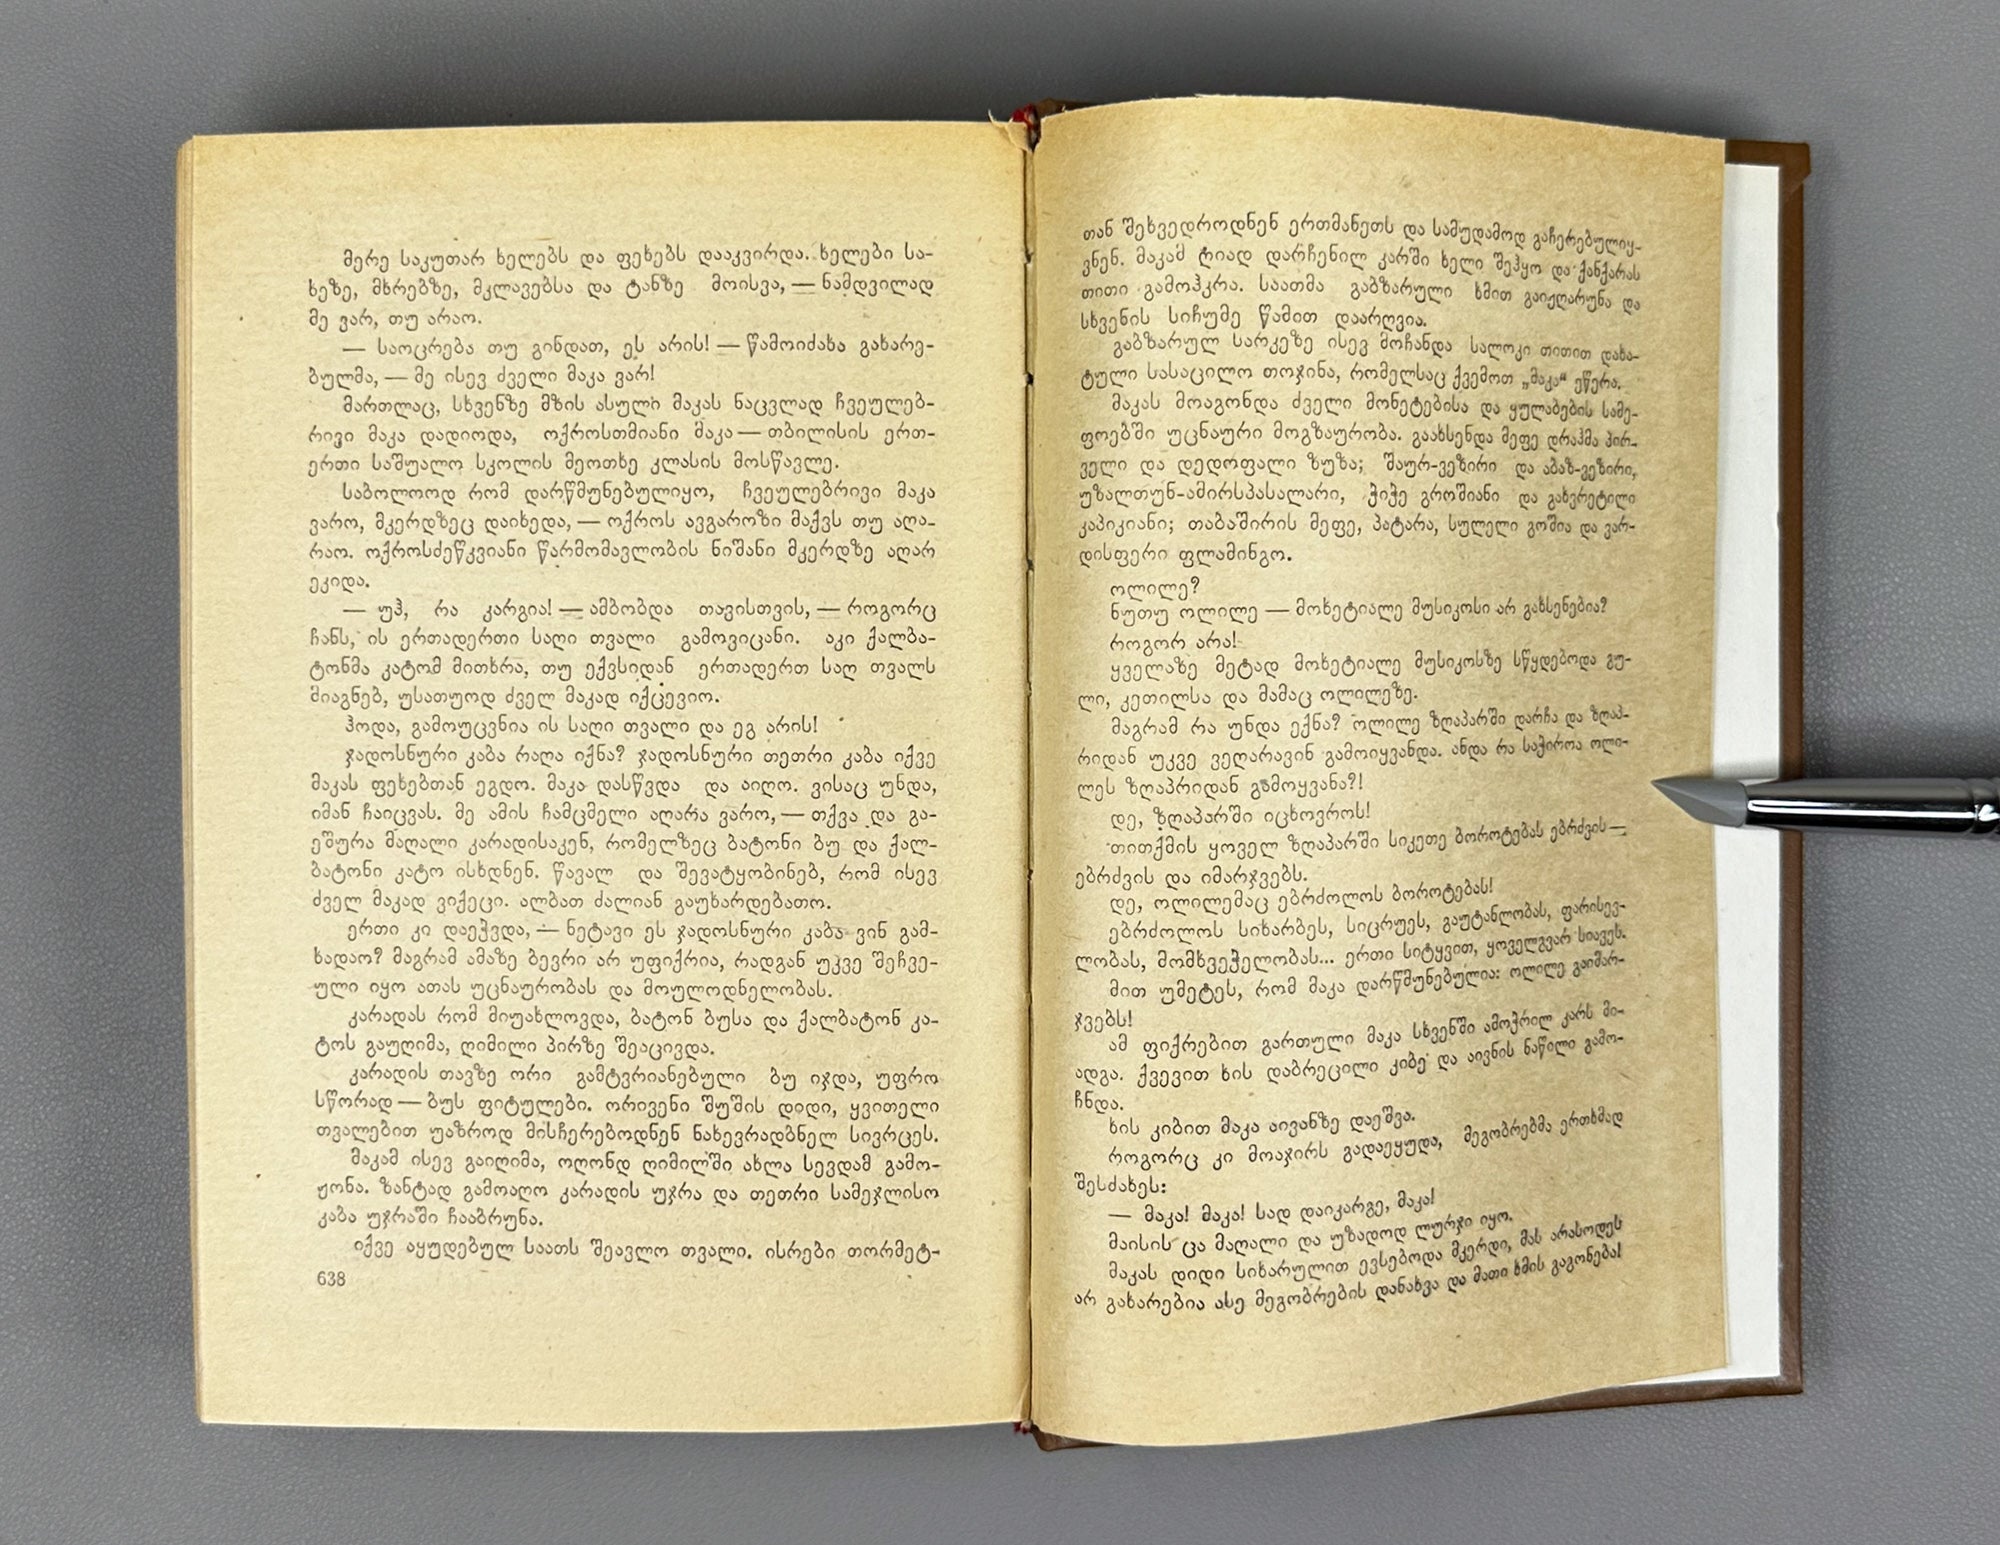 მერე საკუთარ ხელებს და ფეხებს დააკვირდა. ხელები სა-
ხეზე, მხრებზე, მკლავებსა და ტანზე მოისვა, — ნამდვილად
მე ვარ, თუ არაო.
— საოცრება თუ გინდათ, ეს არის! — წამოიძახა გახარე-
ბულმა, — მე ისევ ძველი მაკა ვარ!
მართლაც, სხვენზე მზის ასული მაკას ნაცვლად ჩვეულებ-
რივი მაკა დადიოდა, ოქროსთმიანი მაკა — თბილისის ერთ-
ერთი საშუალო სკოლის მეოთხე კლასის მოსწავლე.
საბოლოოდ რომ დარწმუნებულიყო, ჩვეულებრივი მაკა
ვარო, მკერდზეც დაიხედა, — ოქროს ავგაროზი მაქვს თუ აღა-
რაო. ოქროსძეწკვიანი წარმომავლობის ნიშანი მკერდზე აღარ
ეკიდა.
— უჰ, რა კარგია! — ამბობდა თავისთვის, — როგორც
ჩანს, ის ერთადერთი საღი თვალი გამოვიცანი. აკი ქალბა-
ტონმა კატომ მითხრა, თუ ექვსიდან ერთადერთ საღ თვალს
მიაგნებ, უსათუოდ ძველ მაკად იქცევიო.
ჰოდა, გამოუცვნია ის საღი თვალი და ეგ არის!
ჯადოსნური კაბა რაღა იქნა? ჯადოსნური თეთრი კაბა იქვე
მაკას ფეხებთან ეგდო. მაკა დასწვდა და აიღო. ვისაც უნდა,
იმან ჩაიცვას. მე ამის ჩამცმელი აღარა ვარო, — თქვა და გა-
ეშურა მაღალი კარადისაკენ, რომელზეც ბატონი ბუ და ქალ-
ბატონი კატო ისხდნენ. წავალ და შევატყობინებ, რომ ისევ
ძველ მაკად ვიქეცი. ალბათ ძალიან გაუხარდებათო.
ერთი კი დაეჭვდა, — ნეტავი ეს ჯადოსნური კაბა ვინ გამ-
ხადაო? მაგრამ ამაზე ბევრი არ უფიქრია, რადგან უკვე შეჩვე-
ული იყო ათას უცნაურობას და მოულოდნელობას.
კარადას რომ მიუახლოვდა, ბატონ ბუსა და ქალბატონ კა-
ტოს გაუღიმა, ღიმილი პირზე შეაცივდა.
კარადის თავზე ორი გამტვრიანებული ბუ იჯდა, უფრო
სწორად — ბუს ფიტულები. ორივენი შუშის დიდი, ყვითელი
თვალებით უაზროდ მისჩერებოდნენ ნახევრადბნელ სივრცეს.
მაკამ ისევ გაიღიმა, ოღონდ ღიმილში ახლა სევდამ გამო-
ჟონა. ზანტად გამოაღო კარადის უჯრა და თეთრი სამეჯლისო
კაბა უჯრაში ჩააბრუნა.
იქვე აყუდებულ საათს შეავლო თვალი. ისრები თორმეტ-
638
თან შეხვედროდნენ ერთმანეთს და სამუდამოდ გაჩერებულიყ-
ვნენ. მაკამ ღიად დარჩენილ კარში ხელი შეჰყო და ქანქარას
თითი გამოჰკრა. საათმა გაბზარული ხმით გაიჟღარუნა და
სხვენის სიჩუმე წამით დაარღვია.
გაბზარულ სარკეზე ისევ მოჩანდა სალოკი თითით დახა-
ტული სასაცილო თოჯინა, რომელსაც ქვემოთ „მაკა“ ეწერა.
მაკას მოაგონდა ძველი მონეტებისა და ყულაბების სამე-
ფოებში უცნაური მოგზაურობა. გაახსენდა მეფე დრაჰმა პირ-
ველი და დედოფალი ზუზა; შაურ-ვეზირი და აბაზ-ვეზირი,
უზალთუნ-ამირსპასალარი, ჭიჭე გროშიანი და გახვრეტილი
კაპიკიანი; თაბაშირის მეფე, პატარა, სულელი გოშია და ვარ-
დისფერი ფლამინგო.
ოლილე?
ნუთუ ოლილე — მოხეტიალე მუსიკოსი არ გახსენებია?
როგორ არა!
ყველაზე მეტად მოხეტიალე მუსიკოსზე სწყდებოდა გუ-
ლი, კეთილსა და მამაც ოლილეზე.
მაგრამ რა უნდა ექნა? ოლილე ზღაპარში დარჩა და ზღაპ-
რიდან უკვე ვეღარავინ გამოიყვანდა. ანდა რა საჭიროა ოლი-
ლეს ზღაპრიდან გამოყვანა?!
დე, ზღაპარში იცხოვროს!
თითქმის ყოველ ზღაპარში სიკეთე ბოროტებას ებრძვის —
ებრძვის და იმარჯვებს.
დე, ოლილემაც ებრძოლოს ბოროტებას!
ებრძოლოს სიხარბეს, სიცრუეს, გაუტანლობას, ფარისევ-
ლობას, მომხვეჭელობას... ერთი სიტყვით, ყოველგვარ სიავეს.
მით უმეტეს, რომ მაკა დარწმუნებულია: ოლილე გაიმარ-
ჯვებს!
ამ ფიქრებით გართული მაკა სხვენში ამოჭრილ კარს მი-
ადგა. ქვევით ხის დაბრეცილი კიბე და აივნის ნაწილი გამო-
ჩნდა.
ხის კიბით მაკა აივანზე დაეშვა.
როგორც კი მოაჯირს გადაეყუდა, მეგობრებმა ერთხმად
შესძახეს:
— მაკა! მაკა! სად დაიკარგე, მაკა!
მაისის ცა მაღალი და უზადოდ ლურჯი იყო.
მაკას დიდი სიხარულით ევსებოდა მკერდი, მას არასოდეს
არ გახარებია ასე მეგობრების დანახვა და მათი ხმის გაგონება!